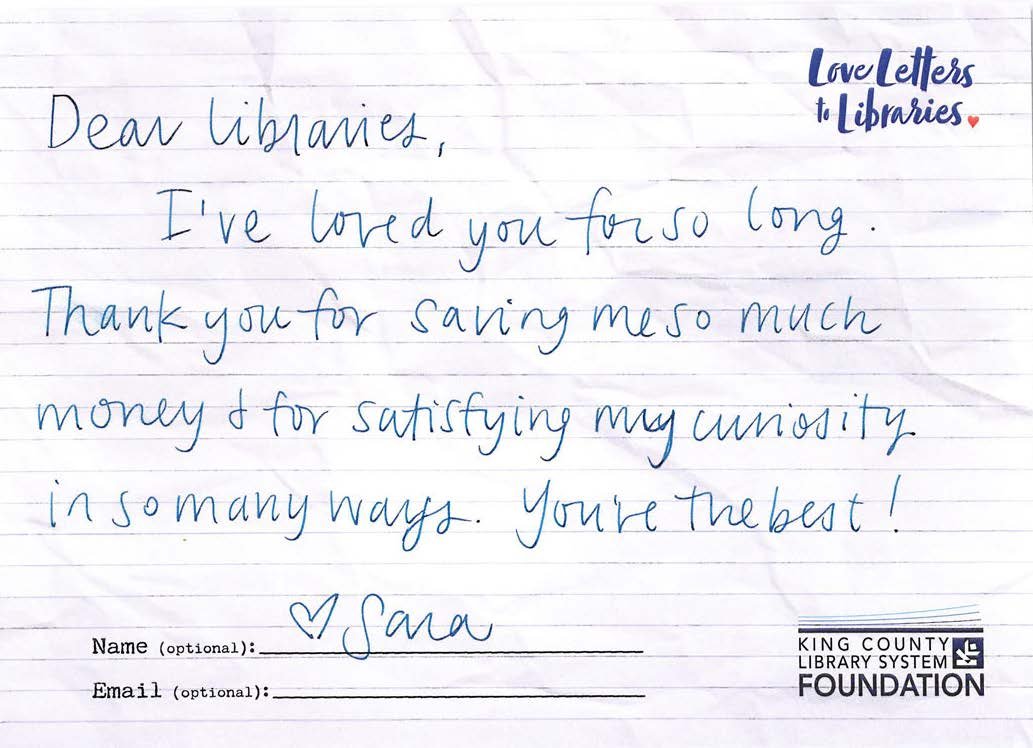 Love Letters
to Libraries
Dear libraries,
I've loved you for so long.
Thank you for saving me so much
money & for satisfying my curiosity
in so many ways. You're the best!
♡ Sara
Name (optional):
Email (optional):
KING COUNTY
LIBRARY SYSTEM
FOUNDATION